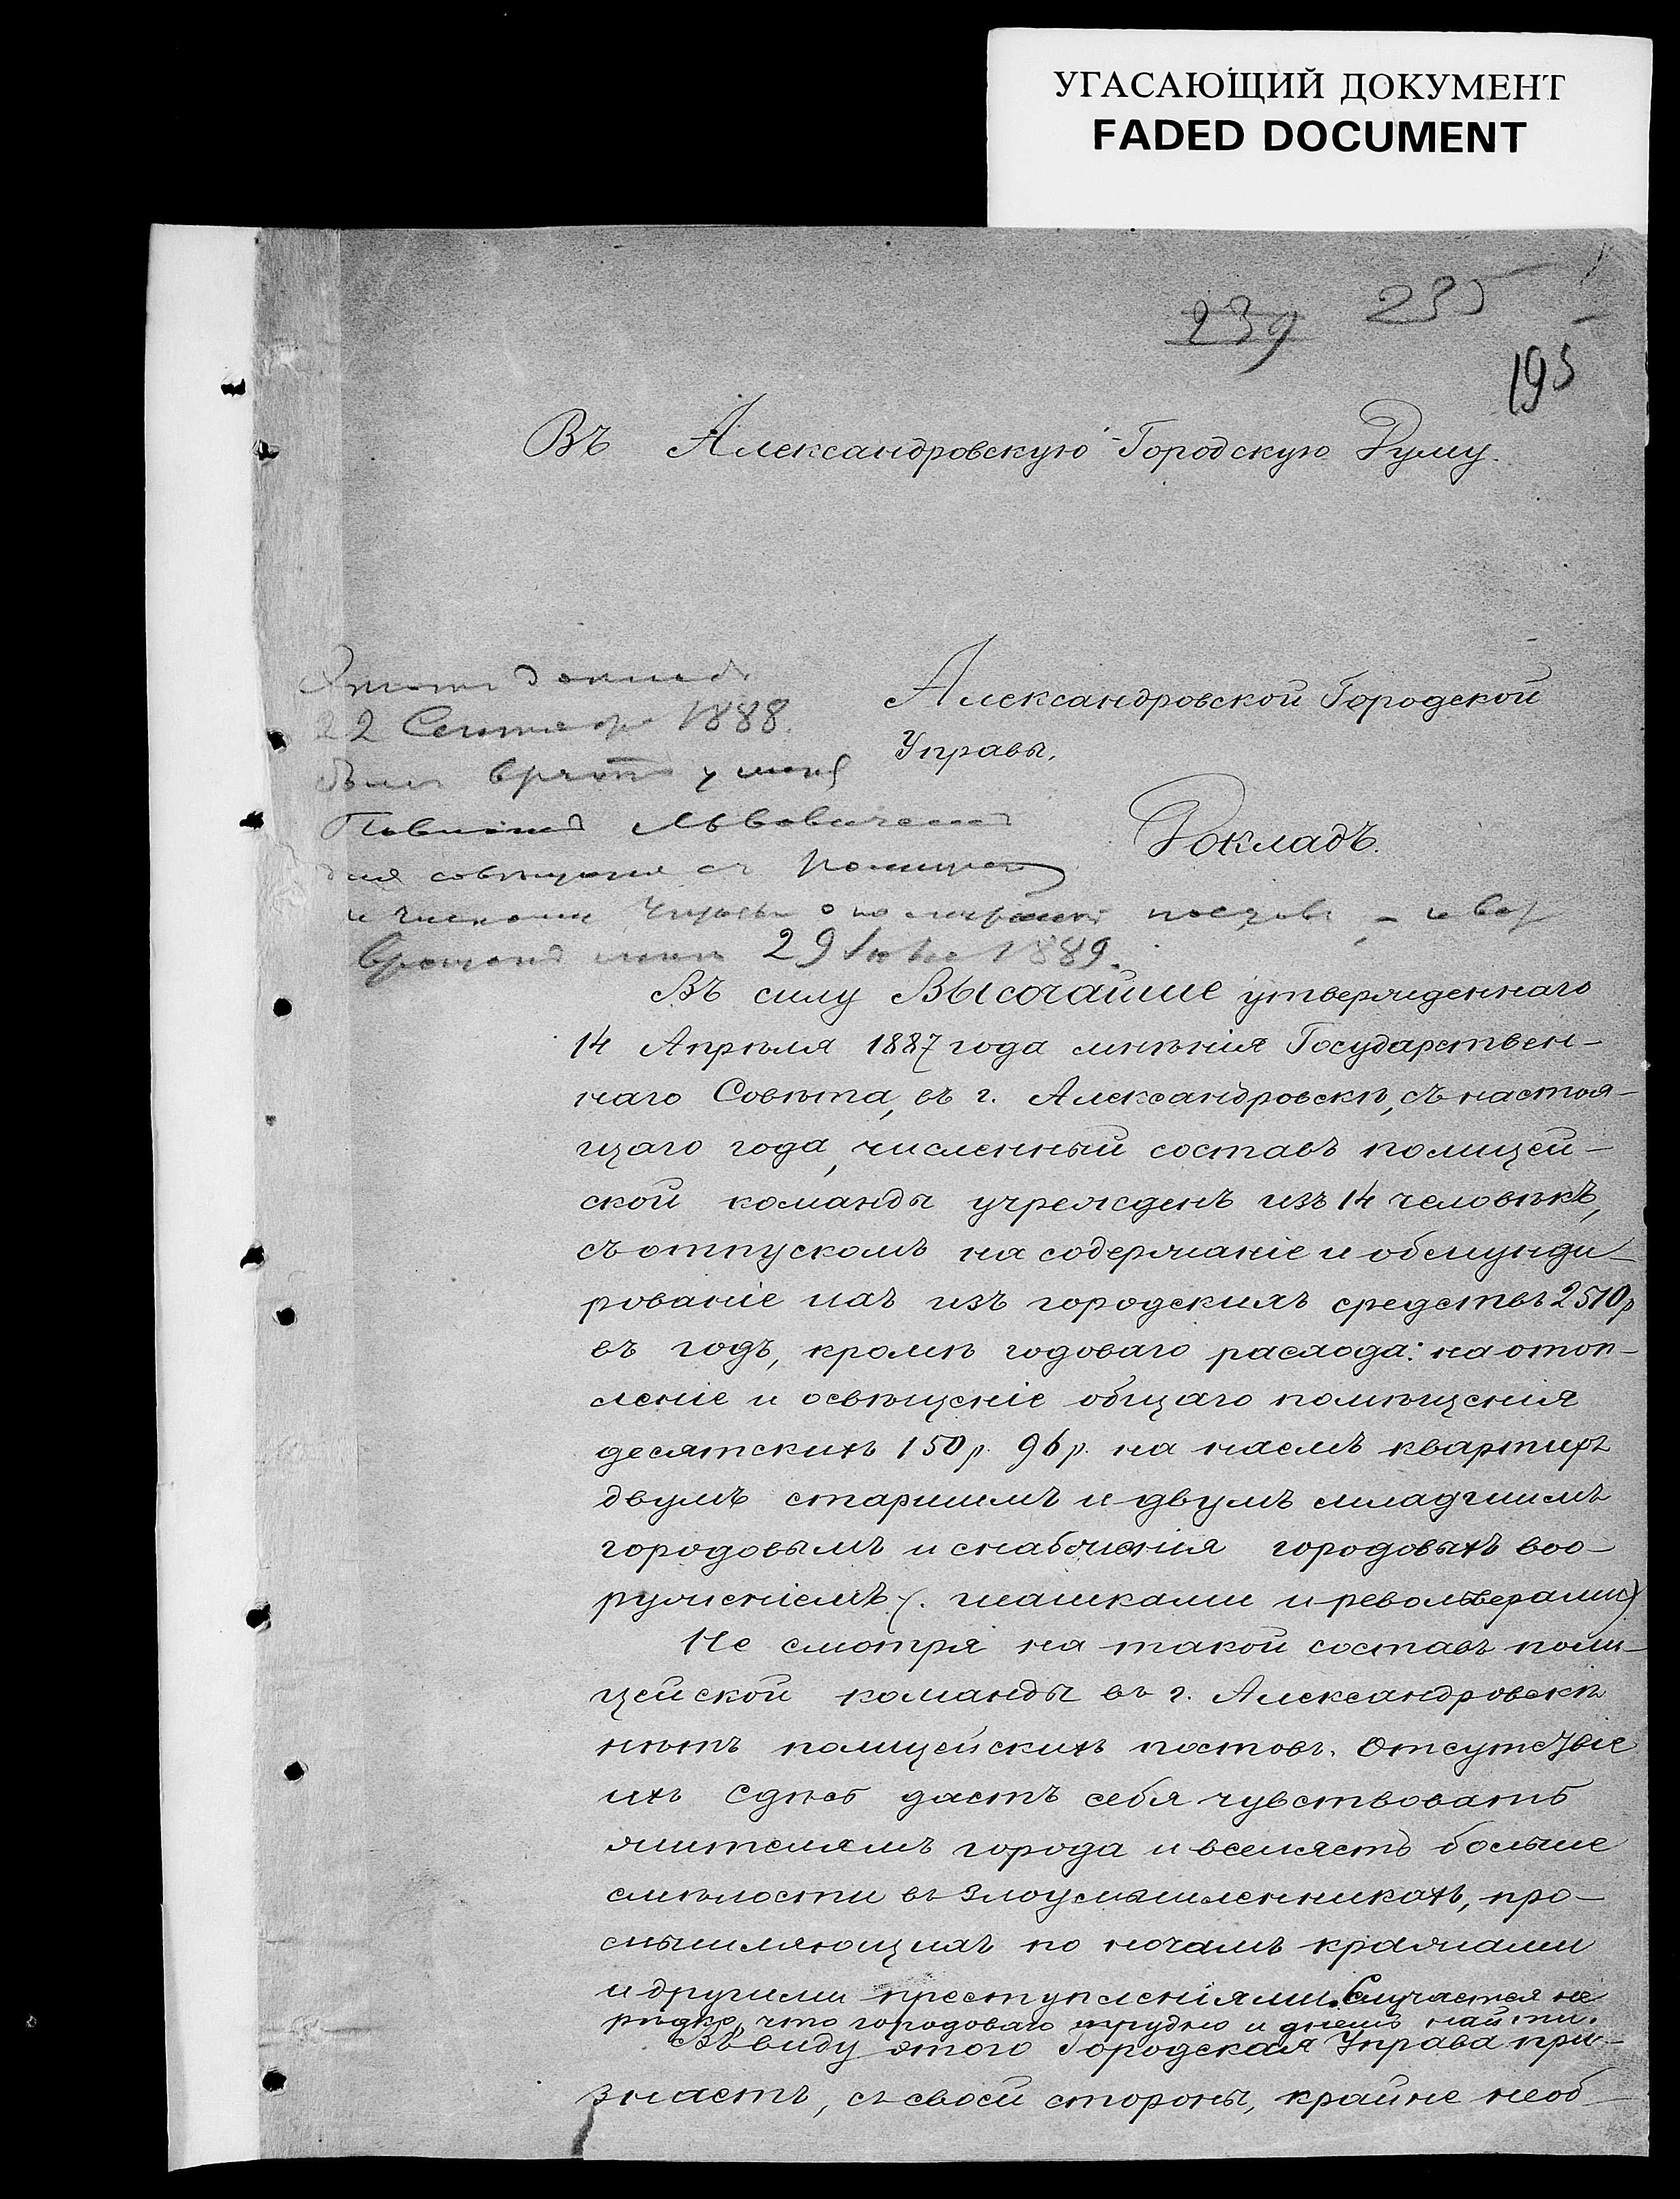 УГАСАЮЩИЙ ДОКУМЕНТ
FADED DOCUMENT
239 235
195
Въ Александровскую Городскую Думу.
Александровской Городской
Управы,
Докладъ.
22 1888.
у меня
Львовичемъ
29 1889.
Въ силу Высочайше утвержденнаго
14 Апрѣля 1887 года мнѣнія Государствен-
наго Совѣта, въ г. Александровскѣ, съ настоя-
щаго года, численный составъ полицей-
ской команды учрежденъ изъ 14 человѣкъ,
съ отпускомъ на содержаніе и обмунди-
рованіе ихъ изъ городскихъ средствъ 2510 р
въ годъ, кромѣ годоваго расхода: на отоп-
леніе и освѣщеніе общаго помѣщенія
десятскихъ 150 р. 96 р. на наемъ квартиръ
двумъ старшимъ и двумъ младшимъ
городовымъ и снабженія городовыхъ воо-
руженіемъ (шашками и револьверами)
Не смотря на такой составъ поли-
цейской команды въ г. Александровскѣ
нѣтъ полицейскихъ постовъ. Отсутствіе
ихъ даетъ себя чувствовать
жителямъ города и вселяетъ больше
смѣлости въ злоумышленникахъ, про-
мышляющихъ по ночамъ кражами
и другими преступленіями. Случается не
рѣдко, что городоваго трудно и днемъ найти.
Въ виду этого Городская Управа при-
знаетъ, съ своей стороны, крайне необ-